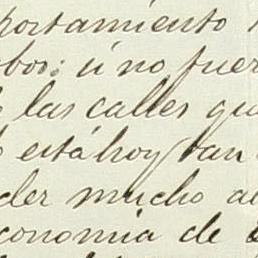 portamiento
bos: si no fuer
las calles qu
está hoy tan
der mucho a
conomia de